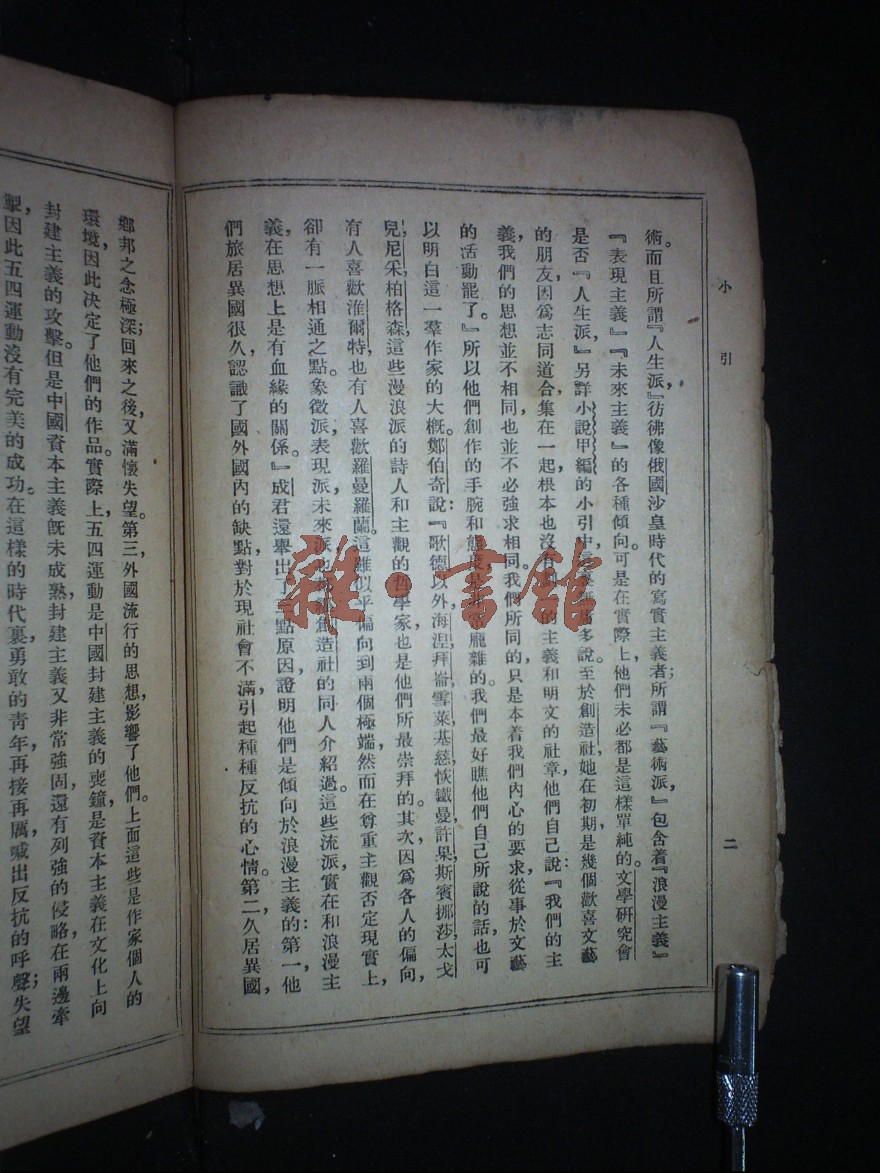 小引
二
術。而且所謂『人生派』彷彿像俄國沙皇時代的寫實主義者；所謂『藝術派』包含着『浪漫主義』
『表現主義』『未來主義』的各種傾向。可是在實際上，他們未必都是這樣單純的。文學研究會
是否『人生派』另詳小說甲編的小引中，多說。至於創造社，她在初期是幾個歡喜文藝
的朋友，因爲志同道合集在一起，根本也沒有的主義和明文的社章，他們自己說：『我們的主
義，我們的思想並不相同，也並不必強求相同。我們所同的，只是本着我們內心的要求，從事於文藝
的活動罷了。』所以他們創作的手腕和態度龐雜的。我們最好瞧他們自己所說的話，也可
以明白這一羣作家的大概。鄭伯奇說：『歌德以外，海涅，拜崙，雪萊，基慈，恢鐵曼，許果，斯賓挪莎，太戈
兒，尼采，柏格森，這些漫浪派的詩人和主觀的哲學家也是他們所最崇拜的。其次，因爲各人的偏向，
有人喜歡淮爾特，也有人喜歡羅曼羅蘭，這雖似乎偏向到兩個極端，然而在尊重主觀，否定現實上，
卻有一脈相通之點。象徵派，表現派，未來派也創造社的同人介紹過。這些流派實在和浪漫主
義，在思想上是有血緣的關係。』成君還舉出了點原因，證明他們是傾向於浪漫主義的：第一，他
們旅居異國很久，認識了國外國內的缺點，對於現社會不滿，引起種種反抗的心情。第二，久居異國，
鄉邦之念極深；回來之後，又滿懷失望。第三，外國流行的思想，影響了他們。上面這些是作家個人的
環境，因此決定了他們的作品。實際上，五四運動是中國封建主義的喪鐘，是資本主義在文化上向
封建主義的攻擊。但是中國資本主義既未成熟，封建主義又非常強固，還有列強的侵略在兩邊牽
掣，因此五四運動沒有完美的成功。在這樣的時代裏，勇敢的青年，再接再厲，喊出反抗的呼聲；失望
雜·書館